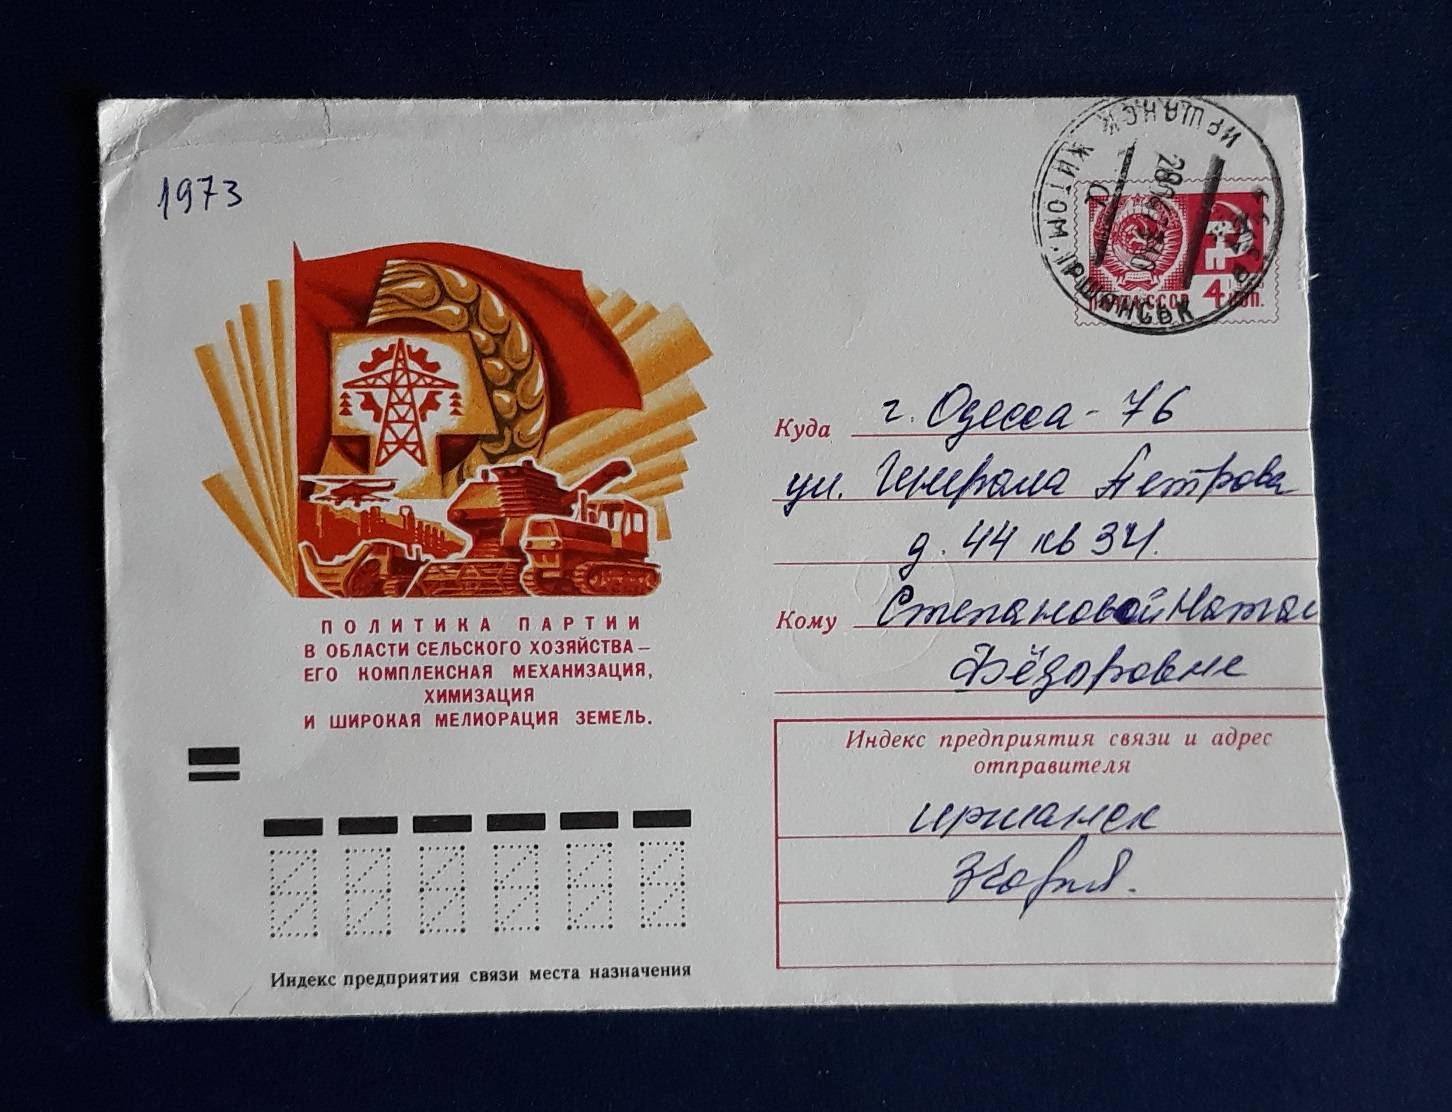 1973
ИРШАНСК ЖИТОМ. ІРШАНСЬК
ПОЧТА СССР 4 КОП.
ПОЛИТИКА ПАРТИИ
В ОБЛАСТИ СЕЛЬСКОГО ХОЗЯЙСТВА —
ЕГО КОМПЛЕКСНАЯ МЕХАНИЗАЦИЯ,
ХИМИЗАЦИЯ
И ШИРОКАЯ МЕЛИОРАЦИЯ ЗЕМЕЛЬ.
Индекс предприятия связи места назначения
Куда г. Одесса - 76
ул. Генерала Петрова
д. 44 кв 34.
Кому Степановой Натал
Фёдоровне
Индекс предприятия связи и адрес
отправителя
иршанск